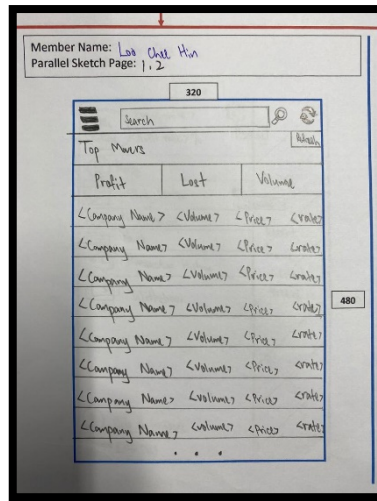 Member Name: Loo Chee Hin
Parallel Sketch Page: 1.2
320
Search
Refresh
Top Movers
Profit Lost Volume
<Company Name> <Volume> <Price> <rate>
<Company Name> <Volume> <Price> <rate>
<Company Name> <Volume> <Price> <rate>
<Company Name> <Volume> <Price> <rate>
480
<Company Name> <Volume> <Price> <rate>
<Company Name> <Volume> <Price> <rate>
<Company Name> <Volume> <Price> <rate>
<Company Name> <Volume> <Price> <rate>
...